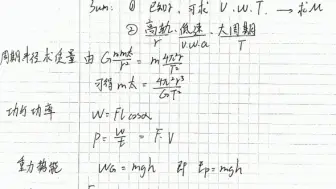 Sum: ① 已知r, 可求 V. W. T. → 求M
② 高轨, 低速, 大周期
r v.w.a T
周期半径求质量 由 G mm太/r² = m 4π²r/T²
可得 m太 = 4π²r³/GT²
功/功率 W=Flcosα
P = W/t = F.V
重力势能 W_G = mgh Ep Ep=mgh